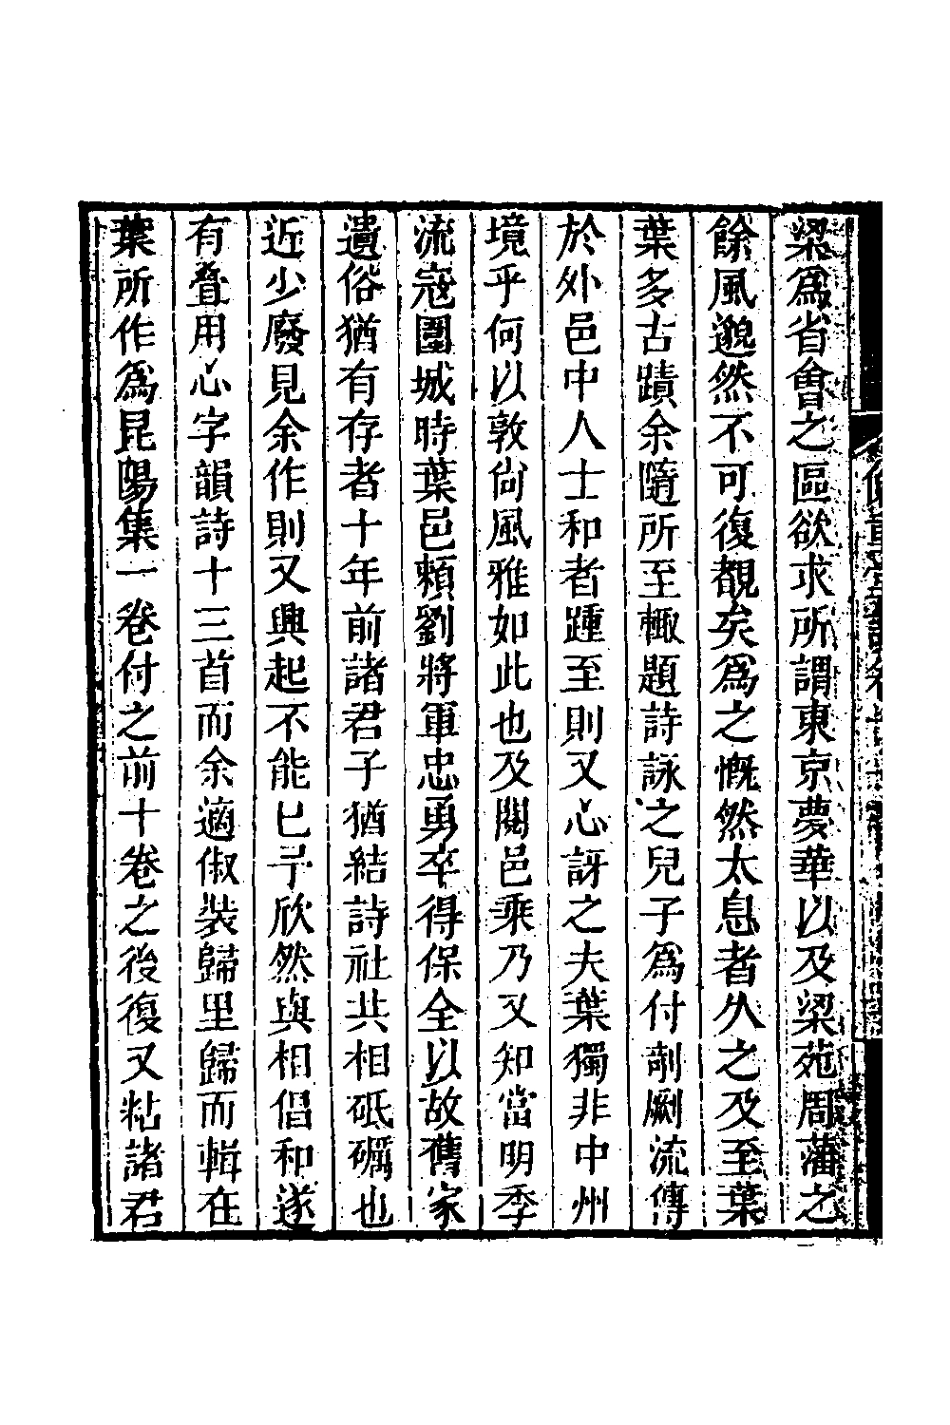 梁爲省會之區欲求所謂東京夢華以及梁苑周藩之
餘風邈然不可復覩矣爲之慨然太息者久之及至葉
葉多古蹟余隨所至輙題詩詠之兒子爲付剞劂流傳
於外邑中人士和者踵至則又心訝之夫葉獨非中州
境乎何以敦尙風雅如此也及閱邑乘乃又知當明季
流寇圍城時葉邑賴劉將軍忠勇卒得保全以故舊家
遺俗猶有存者十年前諸君子猶結詩社共相砥礪也
近少廢見余作則又興起不能已予欣然與相倡和遂
有疊用心字韻詩十三首而余適俶裝歸里歸而輯在
葉所作爲昆陽集一卷付之前十卷之後復又粘諸君